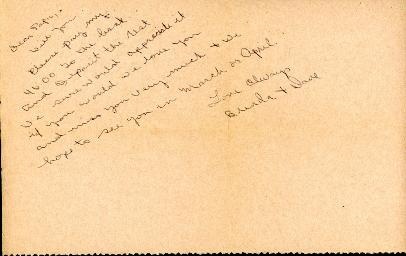 Dear Papa,
will you
Please pay my
46.00 to the bank
and Deposit the rest
We sure would appreciate it
if you would we love you
and miss you very much & we
hope to see you in March or April.
Love Always
Brenda & Dave